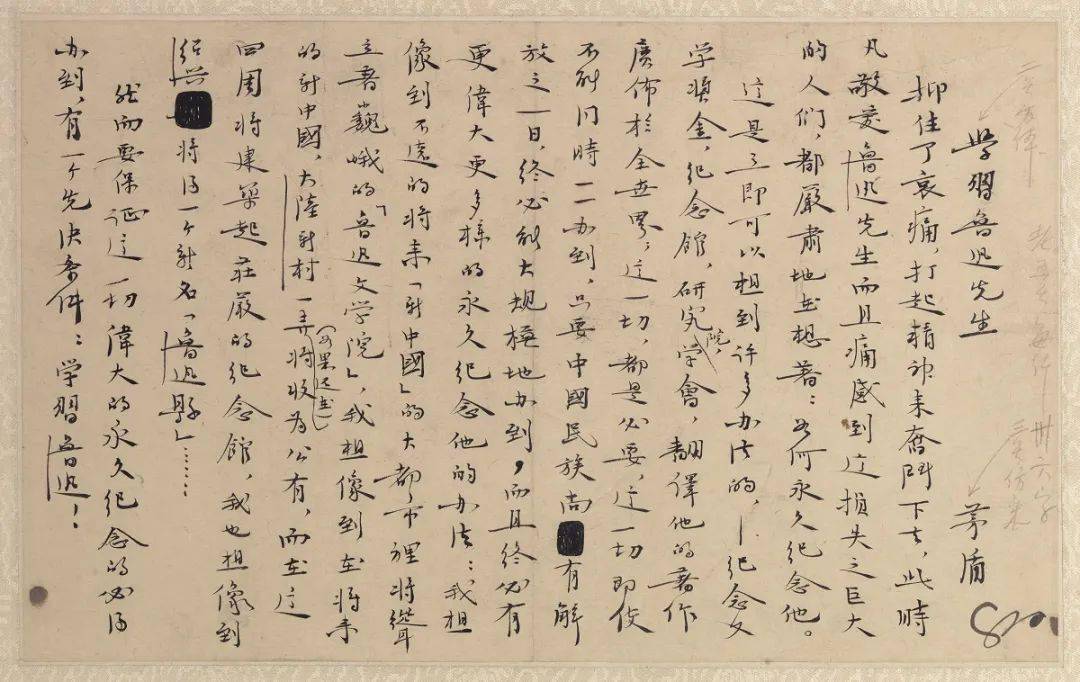 学習魯迅先生
茅盾
抑住了哀痛，打起精神来奮鬥下去，此時
凡敬愛魯迅先生而且痛感到这損失之巨大
的人们，都嚴肅地在想着：如何永久纪念他。
这是立即可以想到许多办法的，—纪念文
学奖金，纪念館，研究院，学會，翻譯他的著作
廣佈於全世界；这一切，都是必要，这一切即使
不能同時一一办到，只要中國民族尚有解
放之一日，终必能大规模地办到，而且终必有
更偉大更多様的永久纪念他的办法：我想
像到不遠的将来「新中國」的大都市裡将聳
立着巍峨的「魯迅文学院」，我想像到在将来
的新中國，大陸新村（如果还在）一弄将收为公有，而在这
四周将建築起莊嚴的纪念館，我也想像到
绍兴将得一个新名「魯迅縣」……
然而要保证这一切偉大的永久纪念的必得
办到，有一个先决条件：学習魯迅！